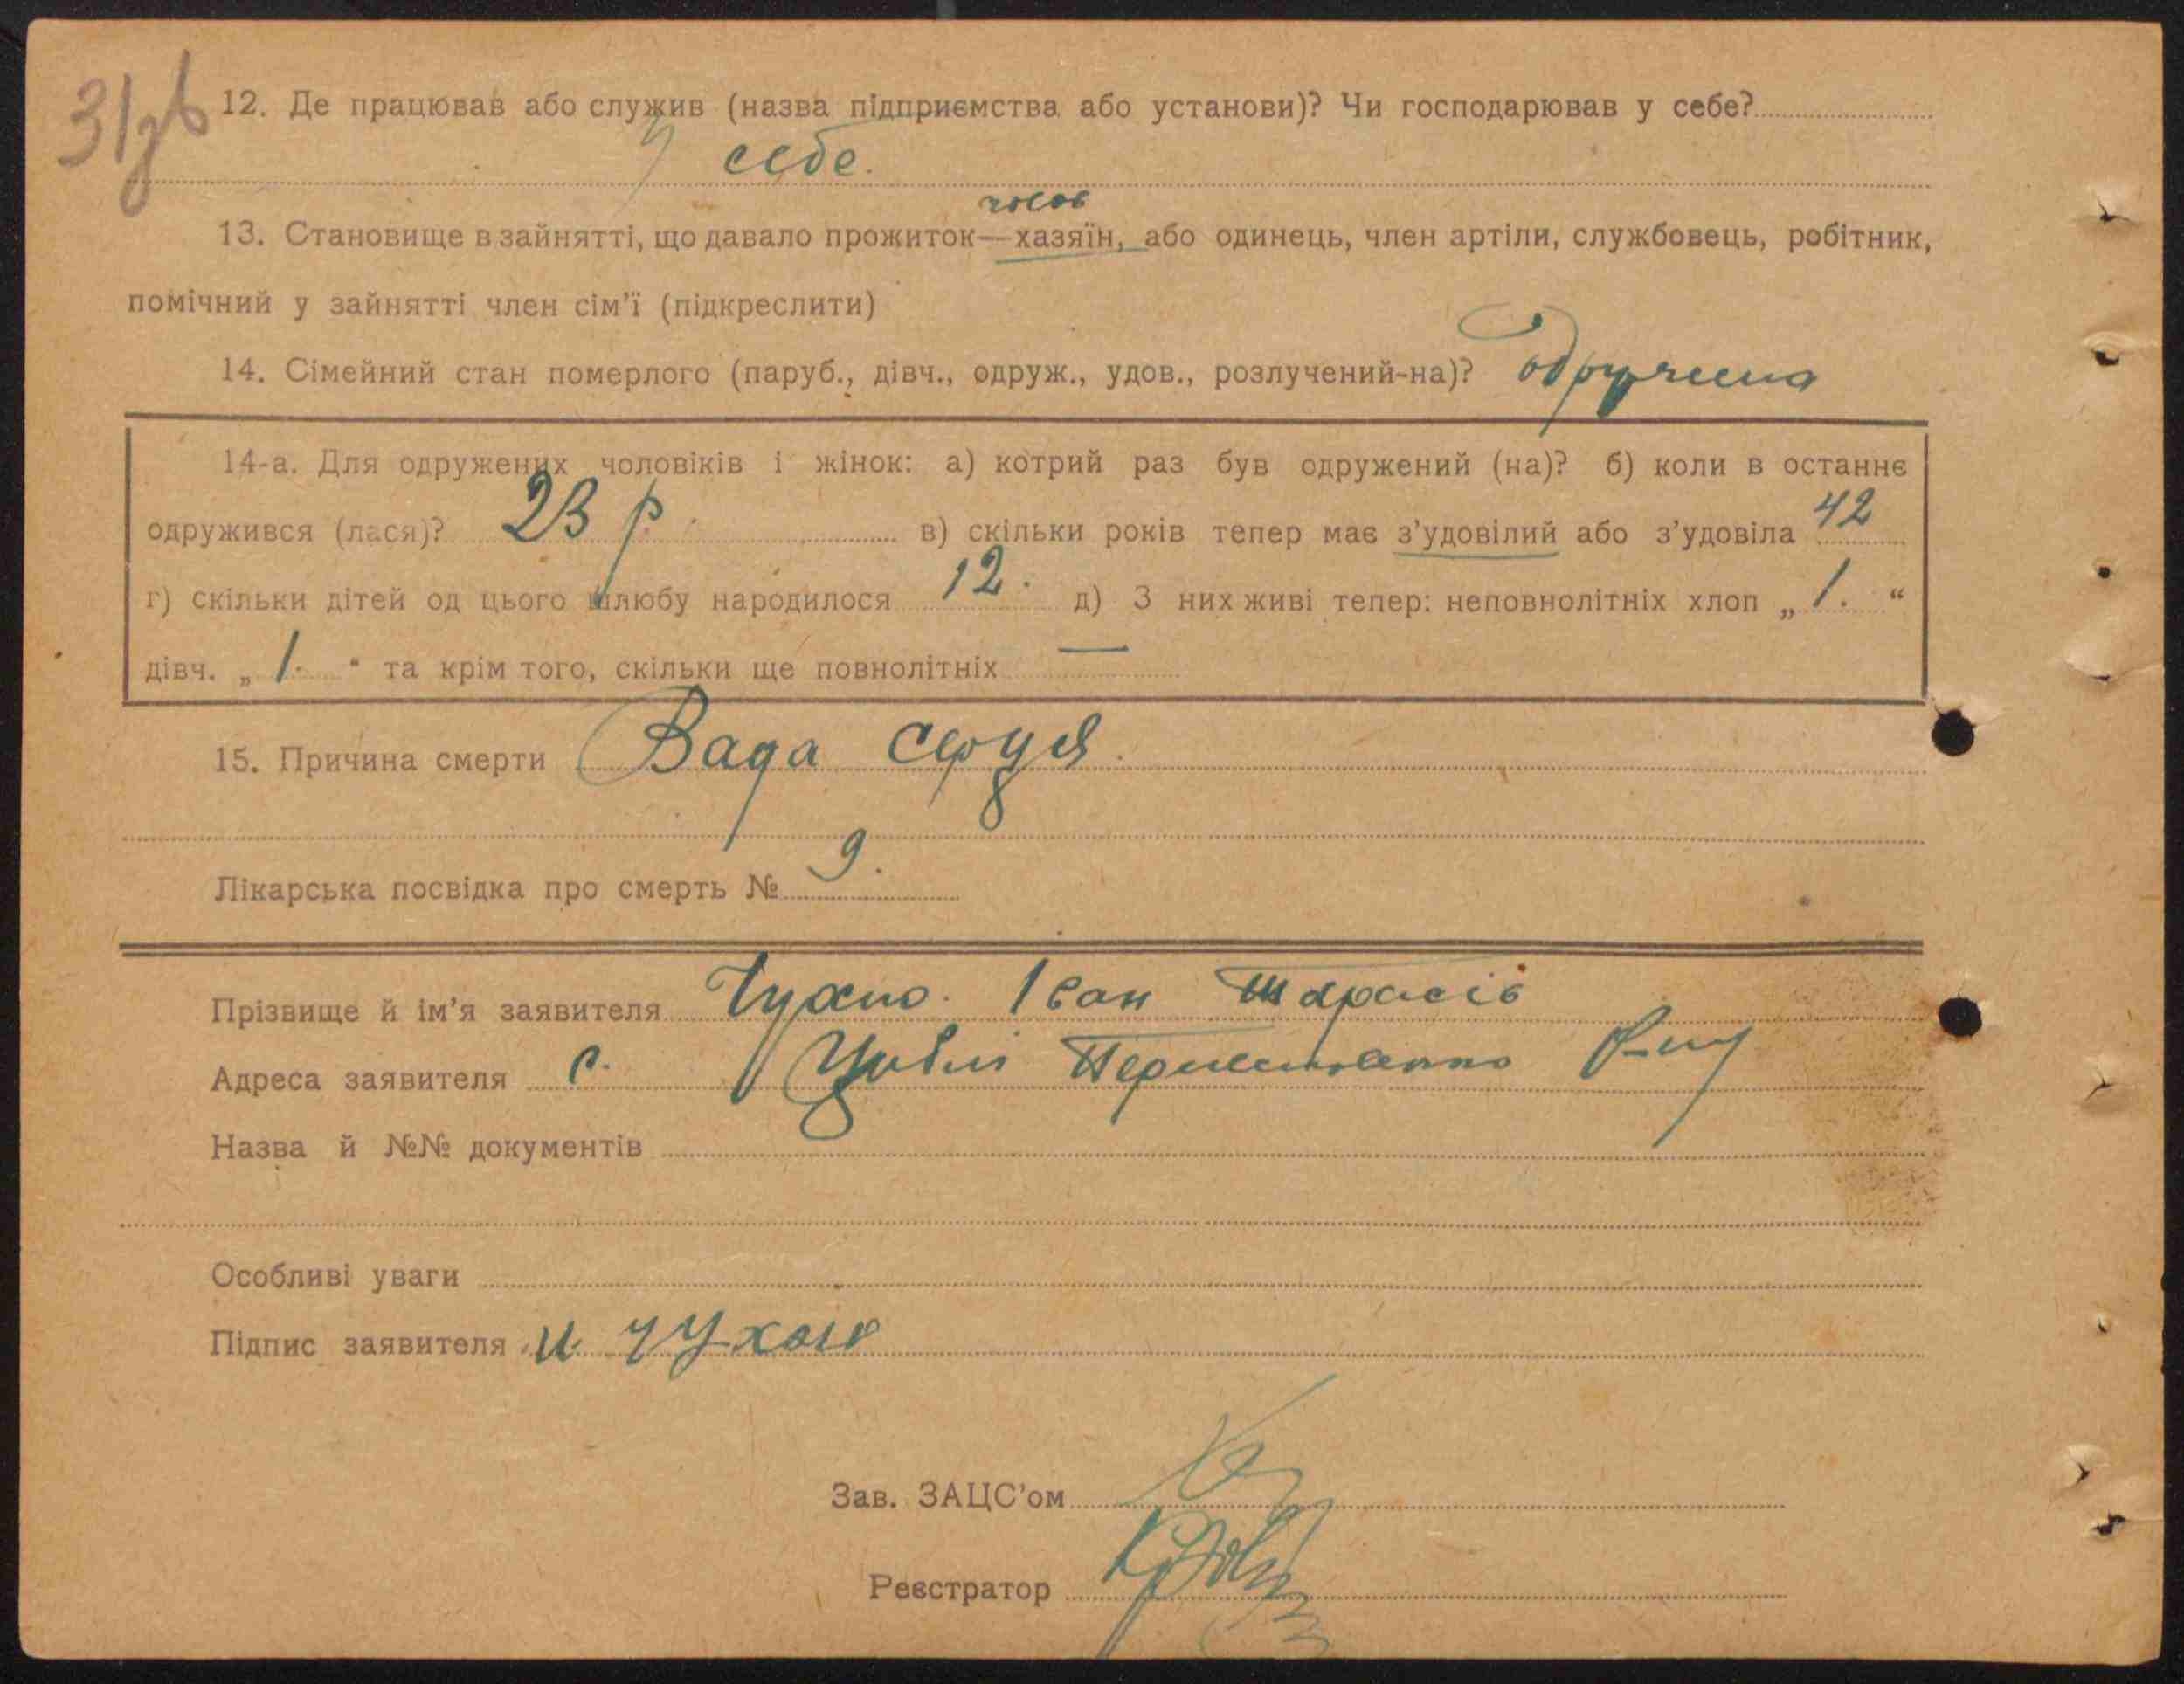 31зв
12. Де працював або служив (назва підприємства або установи)? Чи господарював у себе?
у себе.
чолов
13. Становище в зайнятті, що давало прожиток—хазяїн, або одинець, член артіли, службовець, робітник,
помічний у зайнятті член сім'ї (підкреслити)
14. Сімейний стан померлого (паруб., дівч., одруж., удов., розлучений-на)? одружена
14-а. Для одружених чоловіків і жінок: а) котрий раз був одружений (на)? б) коли в останнє
одружився (лася)? 23 р. в) скільки років тепер має з'удовілий або з'удовіла 42
г) скільки дітей од цього шлюбу народилося 12. д) З них живі тепер: неповнолітніх хлоп „ 1. “
дівч. „ 1. “ та крім того, скільки ще повнолітніх —
15. Причина смерти Вада серця.
Лікарська посвідка про смерть № 9.
Прізвище й ім'я заявителя Чухно. Іван Тарасів
Адреса заявителя с. Циблі Р-ну
Назва й №№ документів
Особливі уваги
Підпис заявителя И Чухно
Зав. ЗАЦС'ом
Реєстратор